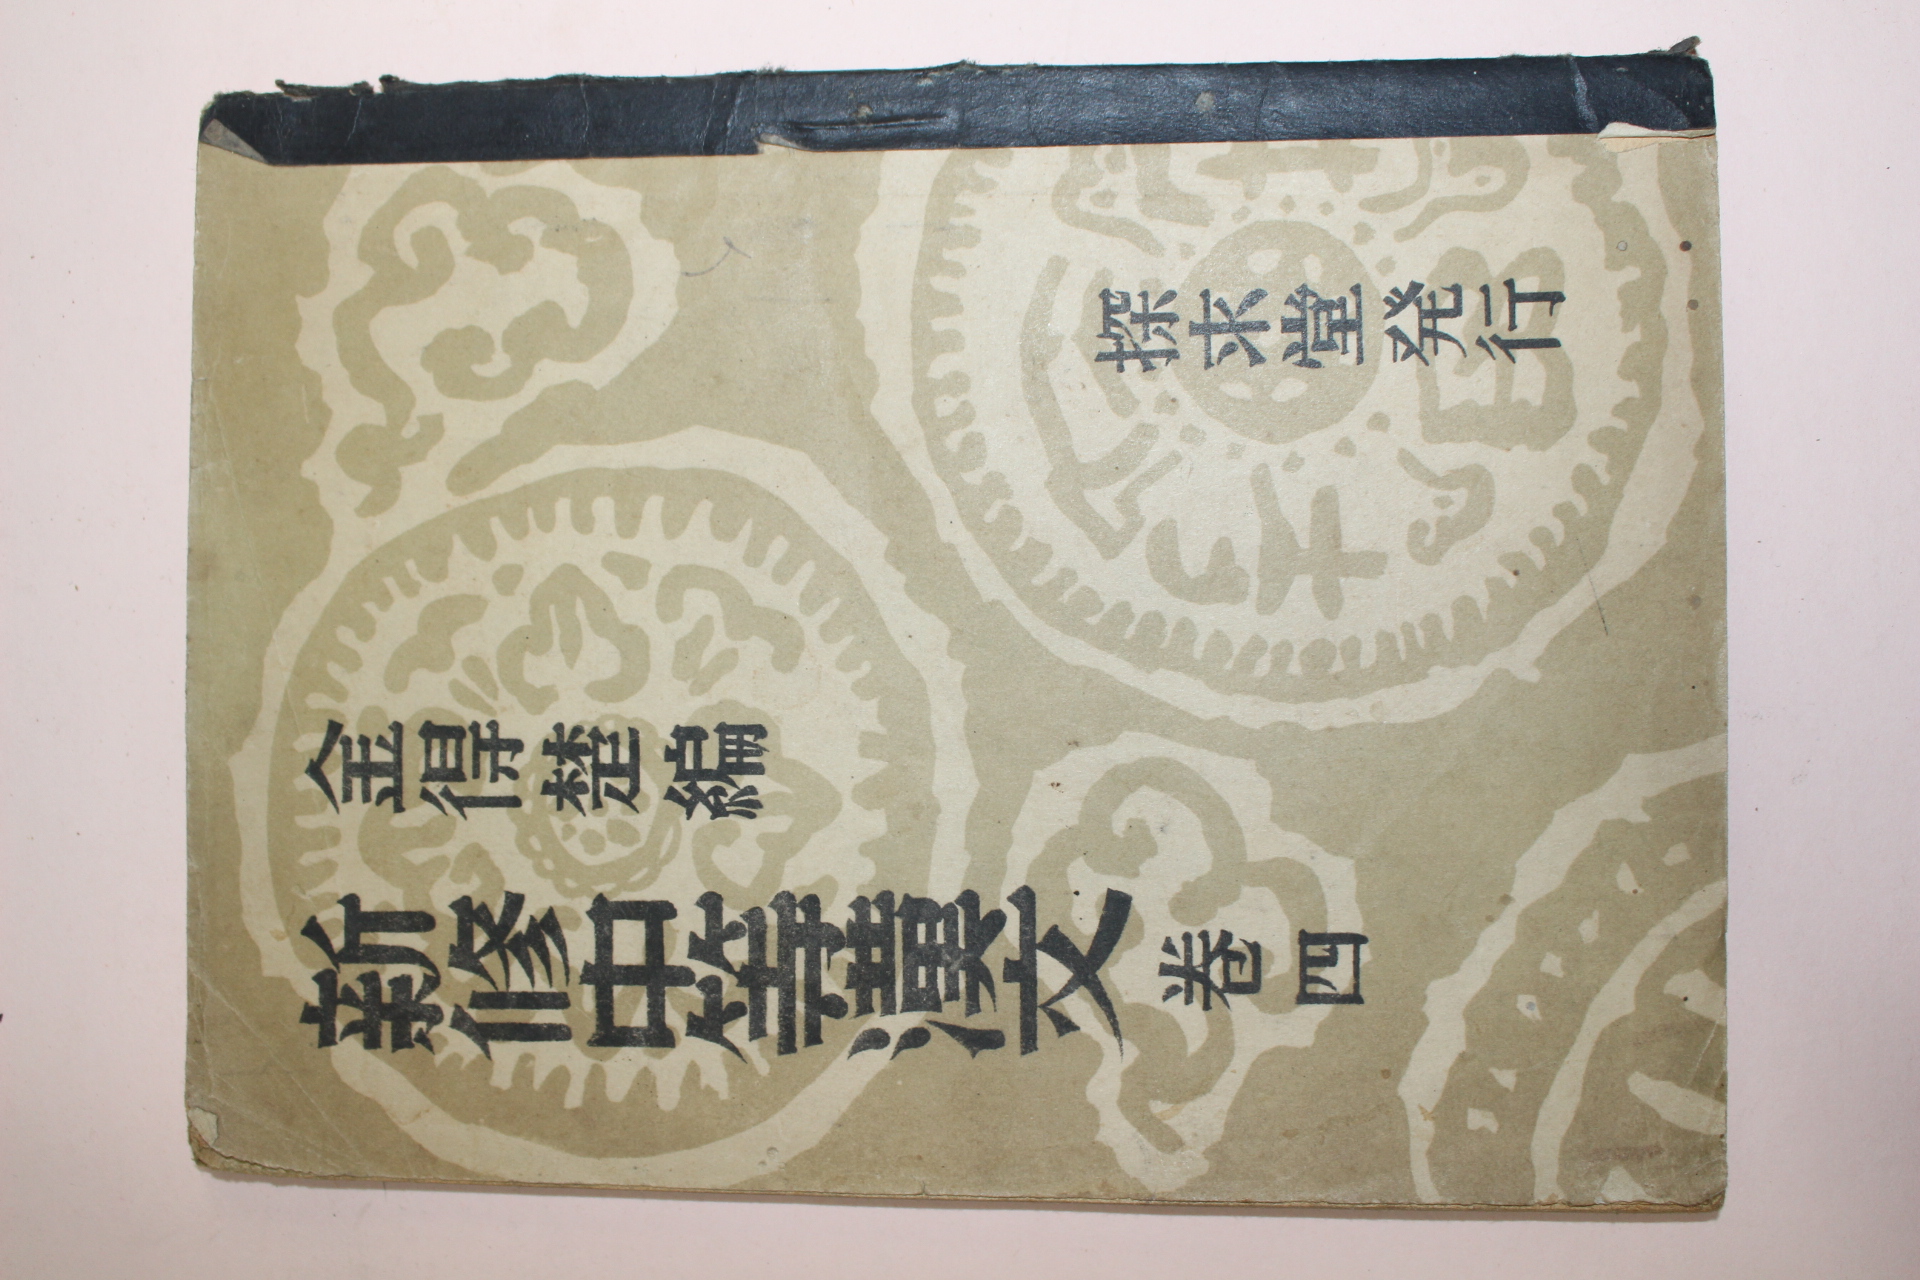 新修中等漢文 卷四
金得楚編
探求堂発行